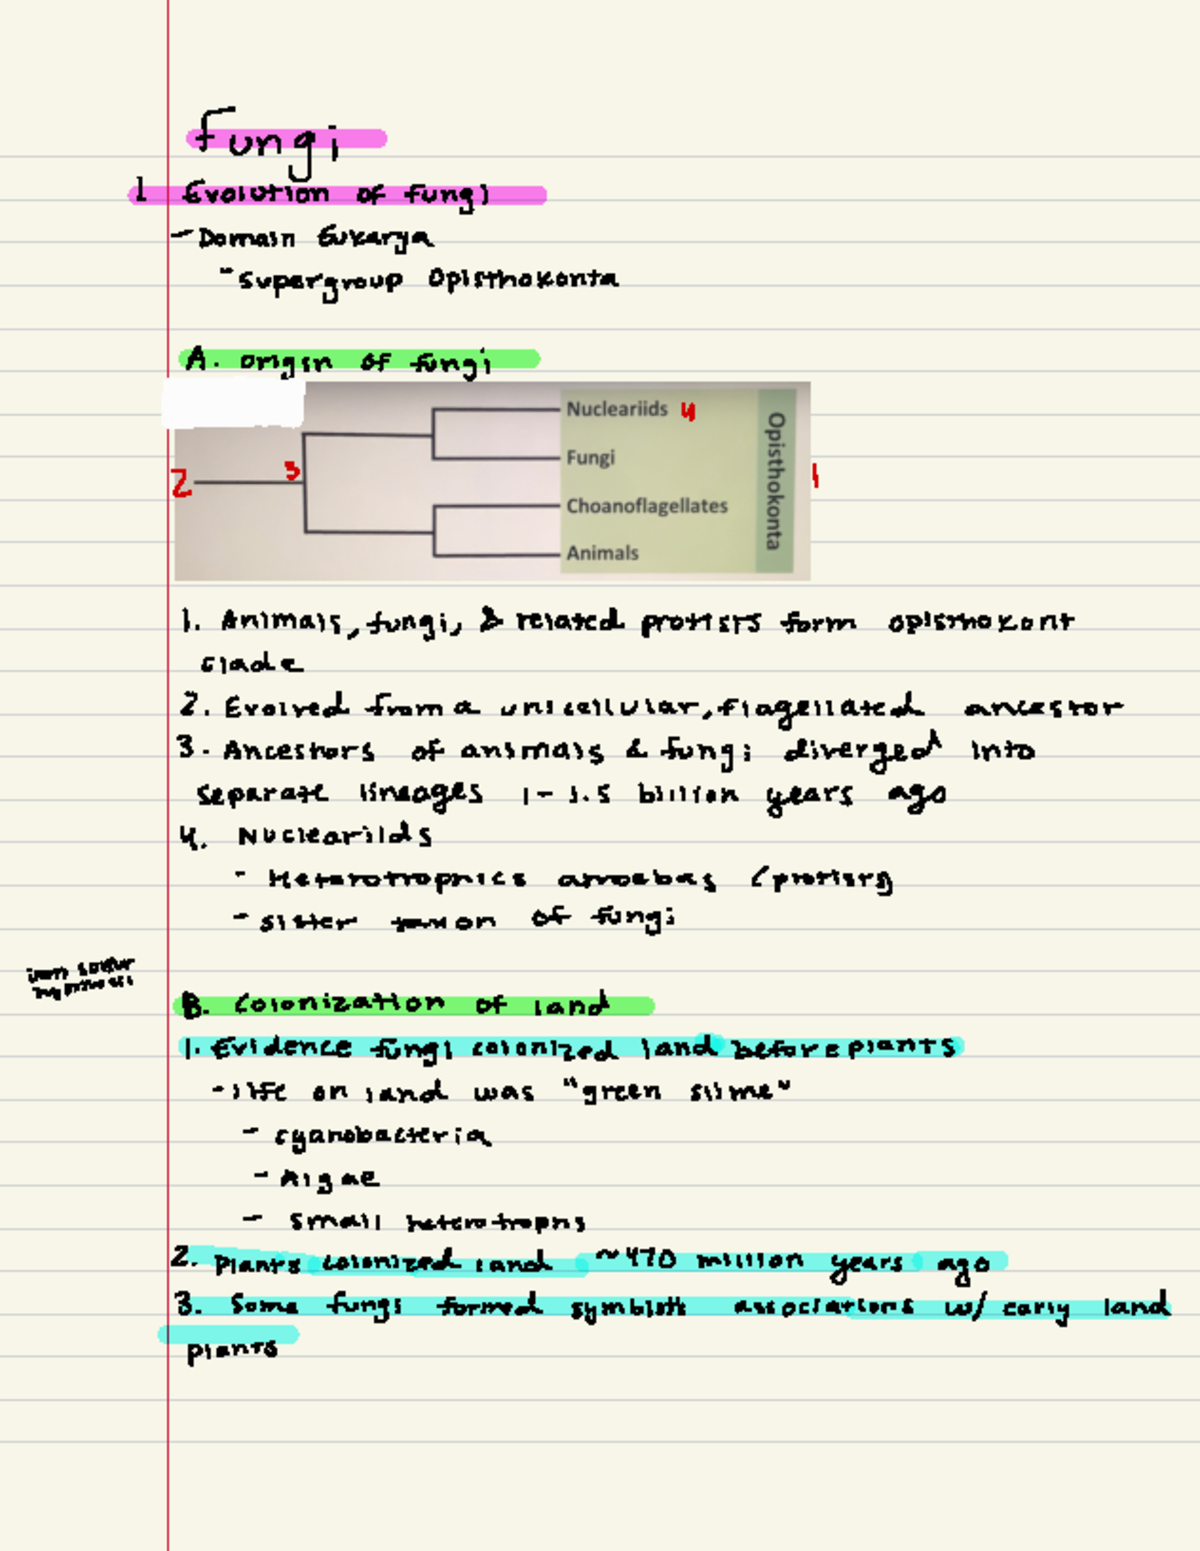 Fungi
1 Evolution of fungi
- Domain Eukarya
- Supergroup Opisthokonta
A. origin of fungi
Nucleariids 4
Fungi
Choanoflagellates
Animals
Opisthokonta
1
2
3
1. Animals, fungi, & related protists form opisthokont
clade
2. Evolved from a unicellular, flagellated ancestor
3. Ancestors of animals & fungi diverged into
separate lineages 1-1.5 billion years ago
4. Nucleariids
- Heterotrophics amoebas (protists)
- sister taxon of fungi
B. Colonization of land
1. Evidence fungi colonized land before plants
- life on land was "green slime"
- cyanobacteria
- Algae
- small heterotrophs
2. Plants colonized land ~470 million years ago
3. Some fungi formed symbiotic associations w/ early land
plants